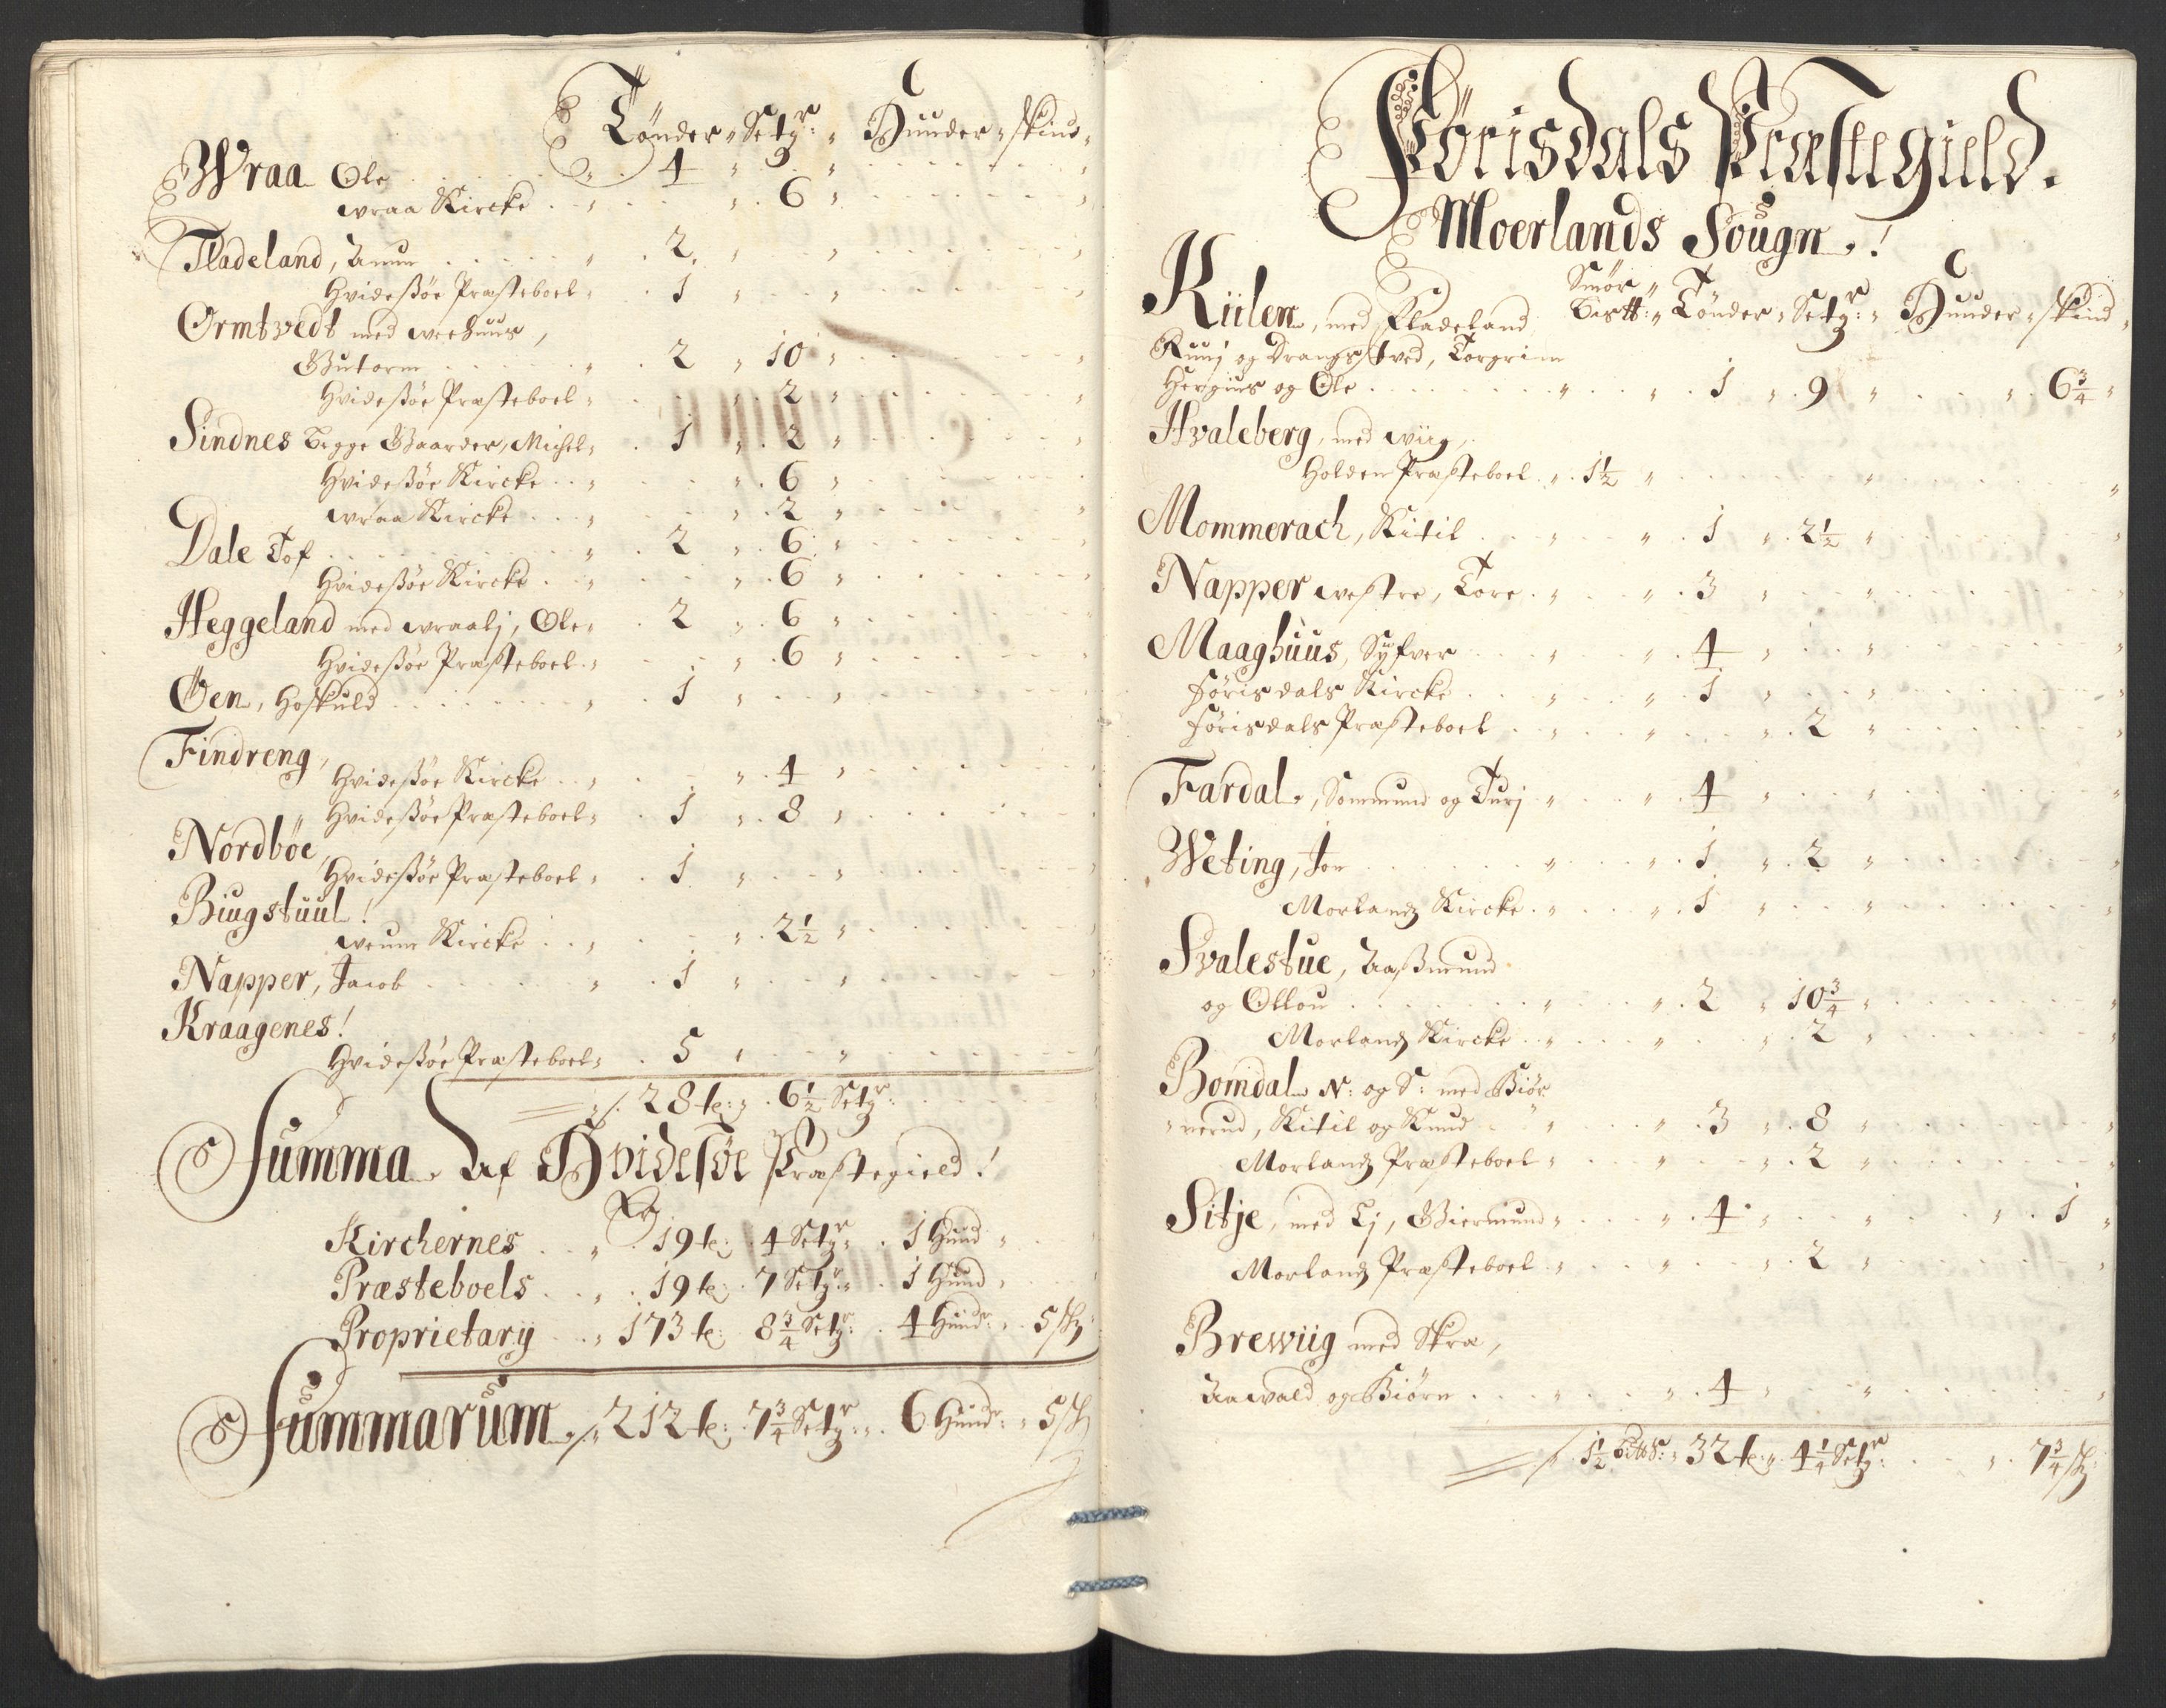 Tönder „ Setgr: „ Huuder „ skind „
Wraa Ole . . . . . „ . 4 „ . . „ . . . . . „
wraa Kircke . . „ . . . „ . 6 „ . . . . . „
Fladeland, Anun . . . . . „ . 2 „ . . „ . . . . „
Hvideßöe Præsteboel „ . 1 „ . . „ . . . . „
Ormtvedt med weehuus,
Gutorm . . . . . „ . 2 „ 10 „ . . . . „
Hvideßöe Præsteboel „ . . „ . 2 „ . . . . „
Sindnes begge Gaarder, Michel „ . 1 „ . 2 „ . . . . „
Hvideßöe Kircke . . „ . . . „ . 6 „ . . . .
wraa Kircke . . „ . . . „ . 2 „ . . . . „
Dale Tof . . . . . . „ . 2 „ . 6 „ . . . .
Hvideßöe Kircke . . „ . . . „ . 6 „ . . . .
Heggeland med wraalj, Ole „ . 2 „ . 6 „ . . . .
Hvideßöe Præsteboel „ . . . „ . 6 „ . . . .
Öen, Hoskuld . . . . . „ . 1 „ . . „ . . . .
Findreng,
Hvideßöe Kircke . . „ . . . „ . 4 „ . . . .
„ Hvideßöe Præsteboel „ . 1 „ . 8 „ . . . .
Nordböe,
Hvideßöe Præsteboel „ . 1 „ . . „ . . . .
Biugstuul!
weum Kircke . . „ . . . „ . 2½ „ . . . .
Napper, Jacob . . . . . „ . 1 „ . . „ . . . .
Kraagenes!
Hvideßöe Præsteboel „ . 5 „ . . „ . . . .
28 te: „ . 6½ Setgr:
Summa Af Hvidesöe Præstegield!
Kirchernes . . „ . 19 te: . 4 Setgr „ . 1 Hund „
Præsteboels . . „ . 19 te: . 7 Setgr „ . 1 Hund „
Proprietary . . „ 173 te: 8¾ Setgr: . 4 Hund: „ 5 sk:
Summarum „ 212 te: 7¾ Setgr: „ 6 Hund: „ 5 sk
Förisdals Præstegield.
Moerlands Sougn!
Smör „
Kiilen, med Fladeland Bis℔: „ Tönder „ Setgr: „ Huuder „ skind „
Ruuj og Drangstved, Torgrim
Hergius og Ole . . . . . „ . . „ . 1 „ . 9 „ . . „ . 6¾ „
Hvaleberg, med wiig,
Holden Præsteboel „ 1½ „ . . . . „ . . . . „
Mommerach, Kitil . . . „ . . „ . 1 „ . 2½ „ . . . . „
Napper westre, Tore . „ . . „ . 3 „ . . „ . . . . „
Maaghuus, Syfver . . . „ . . „ . 4 „ . . „ . . . . „
Förisdals Kircke . . . „ . . „ . 1 „ . . „ . . . . „
Förisdals Præsteboel . . „ . . „ . . „ . 2 „ . . . . „
Fardal, Sommund og Turj „ . . „ . 4 „ . . „ . . . . „
Weting, Jon . . . . . „ . . „ . 1 „ . 2 „ . . . . „
Morlandz Kircke . „ . . „ . 1 „ . . „ . . . . „
Svalestue, Aaßmund
og Ollou . . . . . „ . . „ . 2 „ 10¾ „ . . . . „
Morlandz Kircke . . „ . . „ . . „ . 2 „ . . . . „
Bomdal N: og S: med Biör
„nerud, Kitil og Knud . . „ . . „ . 3 „ . 8 „ . . . . „
Morlandz Præsteboel „ . . „ . . „ . 2 „ . . . . „
Sitje, med Lj, Giermund „ . . „ . 4 „ . . „ . . „ . 1 „
Morlandz Præsteboel „ . . „ . . „ . 2 „ . . . . „
Brewiig med Skra,
Aawald og Biörn . . . „ . . „ . 4 „ . . „ . . . . „
1½ B℔r: „ 32 te: „ 4¼ Setgr: . . „ . 7¾ sk: